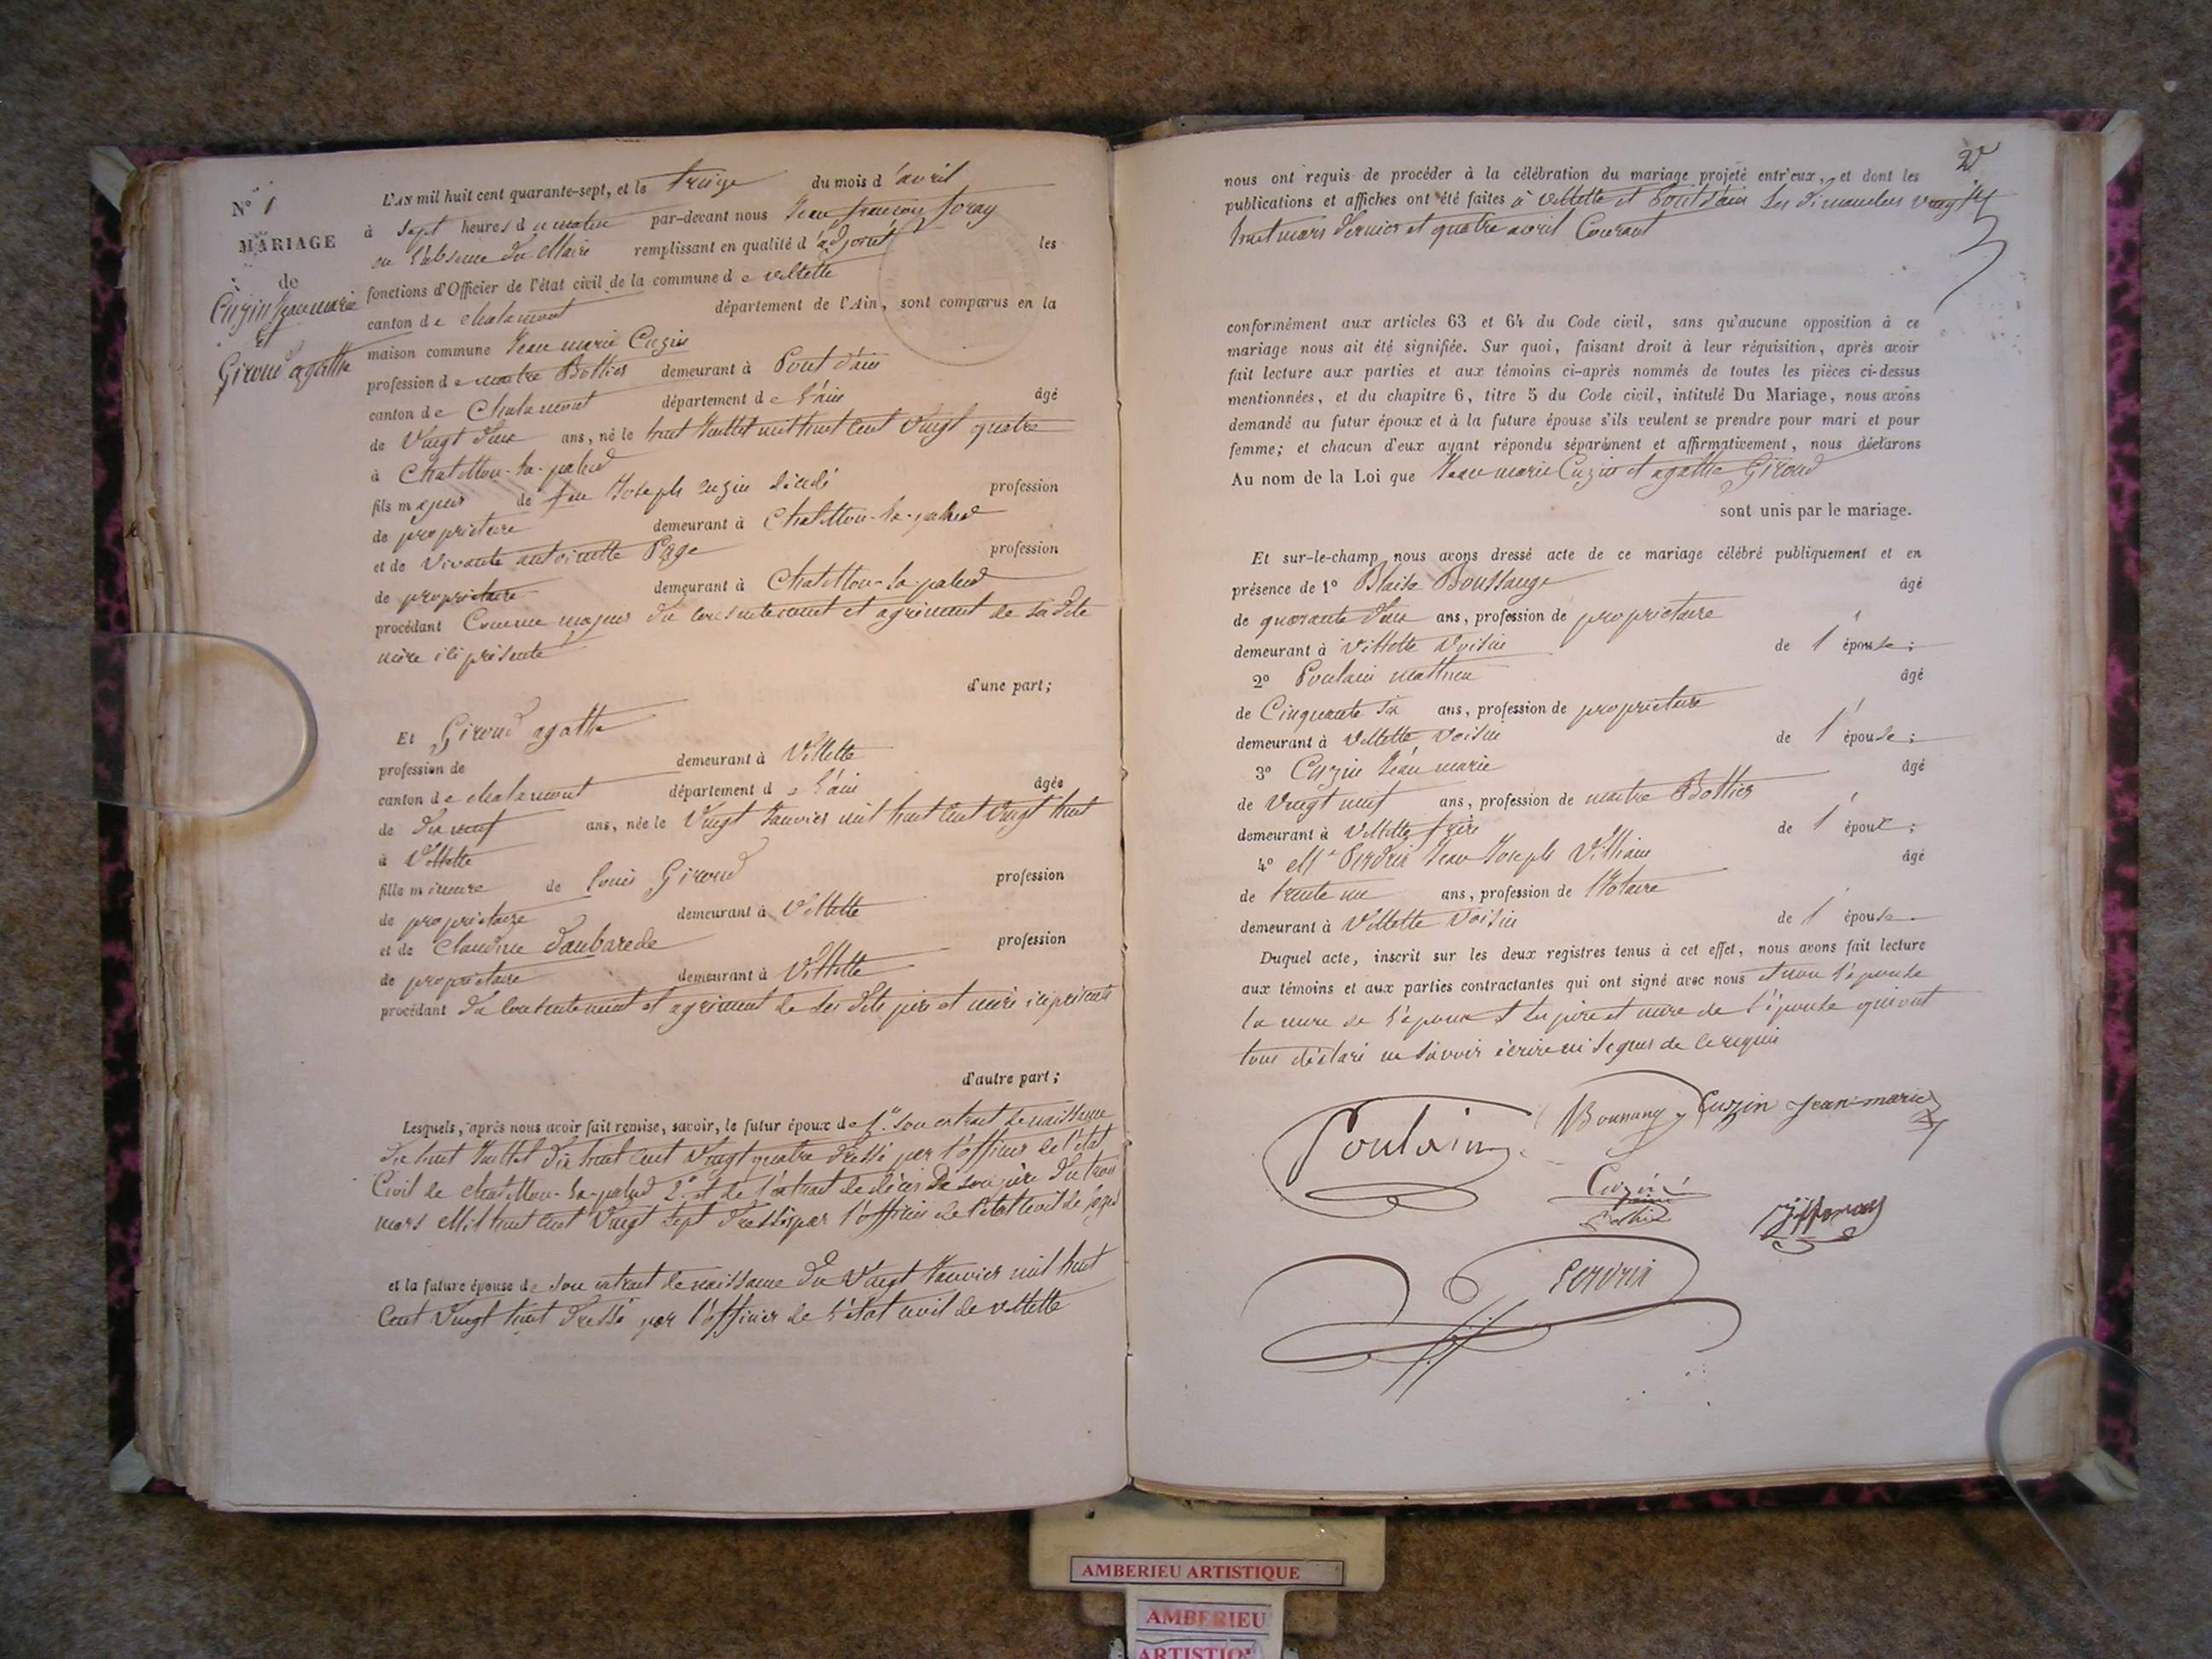 N° 1
MARIAGE
de
Cuzin Jean marie
et
Giroud agathe
L'AN mil huit cent quarante-sept, et le treize du mois d'avril
à sept heures du matin par-devant nous Jean françois foray
en l'absence du Maire remplissant en qualité d'adjoint les
fonctions d'Officier de l'état civil de la commune de villette
canton de chalamont département de l'Ain, sont comparus en la
maison commune Jean marie Cuzin
profession de maitre Bottier demeurant à Pont d'ain
canton de Chalamont département de l'ain âgé
de Vingt deux ans, né le huit Juillet mil huit cent Vingt quatre
à Chatillon-la-palud
fils majeur de feu Joseph cuzin décédé profession
de propriétaire demeurant à Chatillon-la-palud
et de Vivante antoinette Page profession
de propriétaire demeurant à Chatillon-la-palud
procédant Comme majeur du consentement et agrément de sa dite
mère ici présente
d'une part;
Et Giroud agathe
profession de demeurant à Villette
canton de chalamont département de l'ain âgée
de dix neuf ans, née le Vingt Janvier mil huit cent vingt huit
à Villette
fille mineure de louis Giroud profession
de propriétaire demeurant à Villette
et de Claudine Daubarede profession
de propriétaire demeurant à Villette
procédant du consentement et agrément de ses dits père et mère ici présents
d'autre part;
Lesquels, après nous avoir fait remise, savoir, le futur époux de 1° son extrait de naissance
du huit Juillet dix huit cent Vingt quatre dressé par l'officier de l'état
Civil de chatillon-la-palud 2° et de l'extrait de décès de son père du trois
mars Mil huit cent Vingt sept dressé par l'officier de l'état civil de
et la future épouse de son extrait de naissance du Vingt Janvier mil huit
Cent Vingt huit dressé par l'officier de l'état civil de villette
2
nous ont requis de procéder à la célébration du mariage projeté entr'eux, et dont les
publications et affiches ont été faites à villette et Pont d'ain les dimanches vingt
huit mars dernier et quatre avril Courant
conformément aux articles 63 et 64 du Code civil, sans qu'aucune opposition à ce
mariage nous ait été signifiée. Sur quoi, faisant droit à leur réquisition, après avoir
fait lecture aux parties et aux témoins ci-après nommés de toutes les pièces ci-dessus
mentionnées, et du chapitre 6, titre 5 du Code civil, intitulé Du Mariage, nous avons
demandé au futur époux et à la future épouse s'ils veulent se prendre pour mari et pour
femme; et chacun d'eux ayant répondu séparément et affirmativement, nous déclarons
Au nom de la Loi que Jean marie Cuzin et agathe Giroud
sont unis par le mariage.
Et sur-le-champ nous avons dressé acte de ce mariage célébré publiquement et en
présence de 1° Blaise Boussange âgé
de quarante deux ans, profession de propriétaire
demeurant à Villette Voisin de l'épouse;
2° Poulain mathieu âgé
de Cinquante six ans, profession de propriétaire
demeurant à Villette voisin de l'épouse;
3° Cuzin Jean marie âgé
de vingt neuf ans, profession de maitre Bottier
demeurant à Villette frère de l'époux;
4° Mr Perdrix Jean Joseph âgé
de trente un ans, profession de Notaire
demeurant à Villette Voisin de l'épouse.
Duquel acte, inscrit sur les deux registres tenus à cet effet, nous avons fait lecture
aux témoins et aux parties contractantes qui ont signé avec nous et non l'épouse
la mère de l'époux et les père et mère de l'épouse qui ont
tous déclaré ne savoir écrire ni signer de ce requis
Poulain Boussange Cuzin Jean-marie
Cuzin
Perdrix
AMBERIEU ARTISTIQUE
AMBERIEU